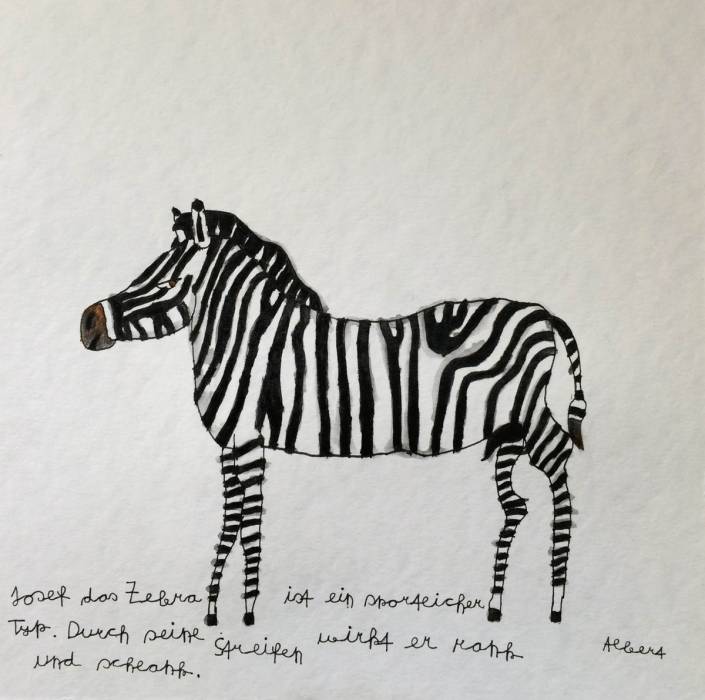 Josef das Zebra ist ein sportlicher
Typ. Durch seine Streifen wirkt er rank
und schlank. Albert